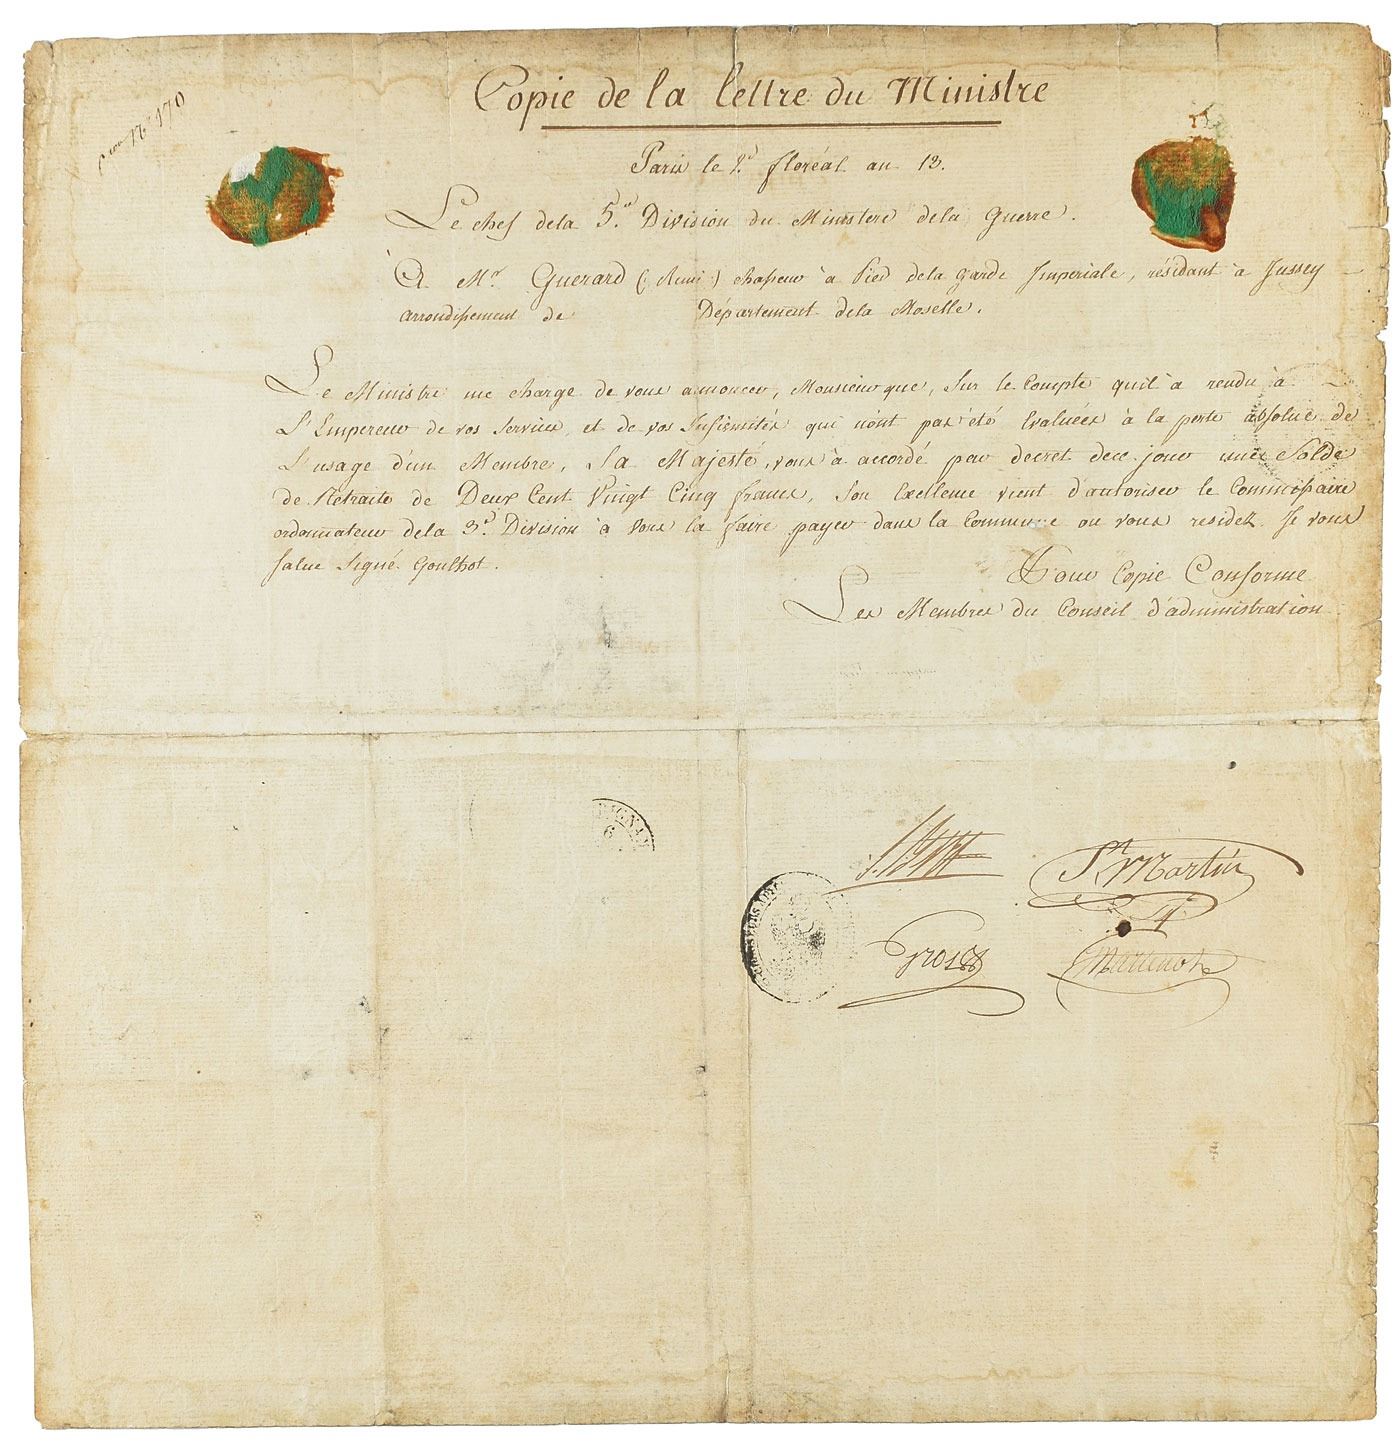 N° 170
Copie de la lettre du Ministre
Paris le 2.d floréal an 13.
Le chef dela 5.e Division du Ministere dela Guerre.
A Mr Guerard (Remi) chasseur à Pied dela garde Imperiale, résidant à Jussey
arrondissement de Département dela Moselle.
Le Ministre me charge de vous annoncer, Monsieur que, Sur le Compte qu'il à rendu à
L'Empereur de vos Services, et de vos Infirmités qui n'ont pas été Evaluées à la perte absolue de
L'usage d'un Membre, Sa Majesté, vous à accordé par decret dece jour une Solde
de Retraite de Deux Cent Vingt Cinq francs, Son Excellence vient d'autoriser le Commissaire
ordonnateur dela 3.e Division à vous la faire payer dans la Commune ou vous residez. Je vous
salue Signé Goulhot.
Pour Copie Conforme
Les Membres du Conseil d'administration
PIGNAN
6
St Martin
Gros